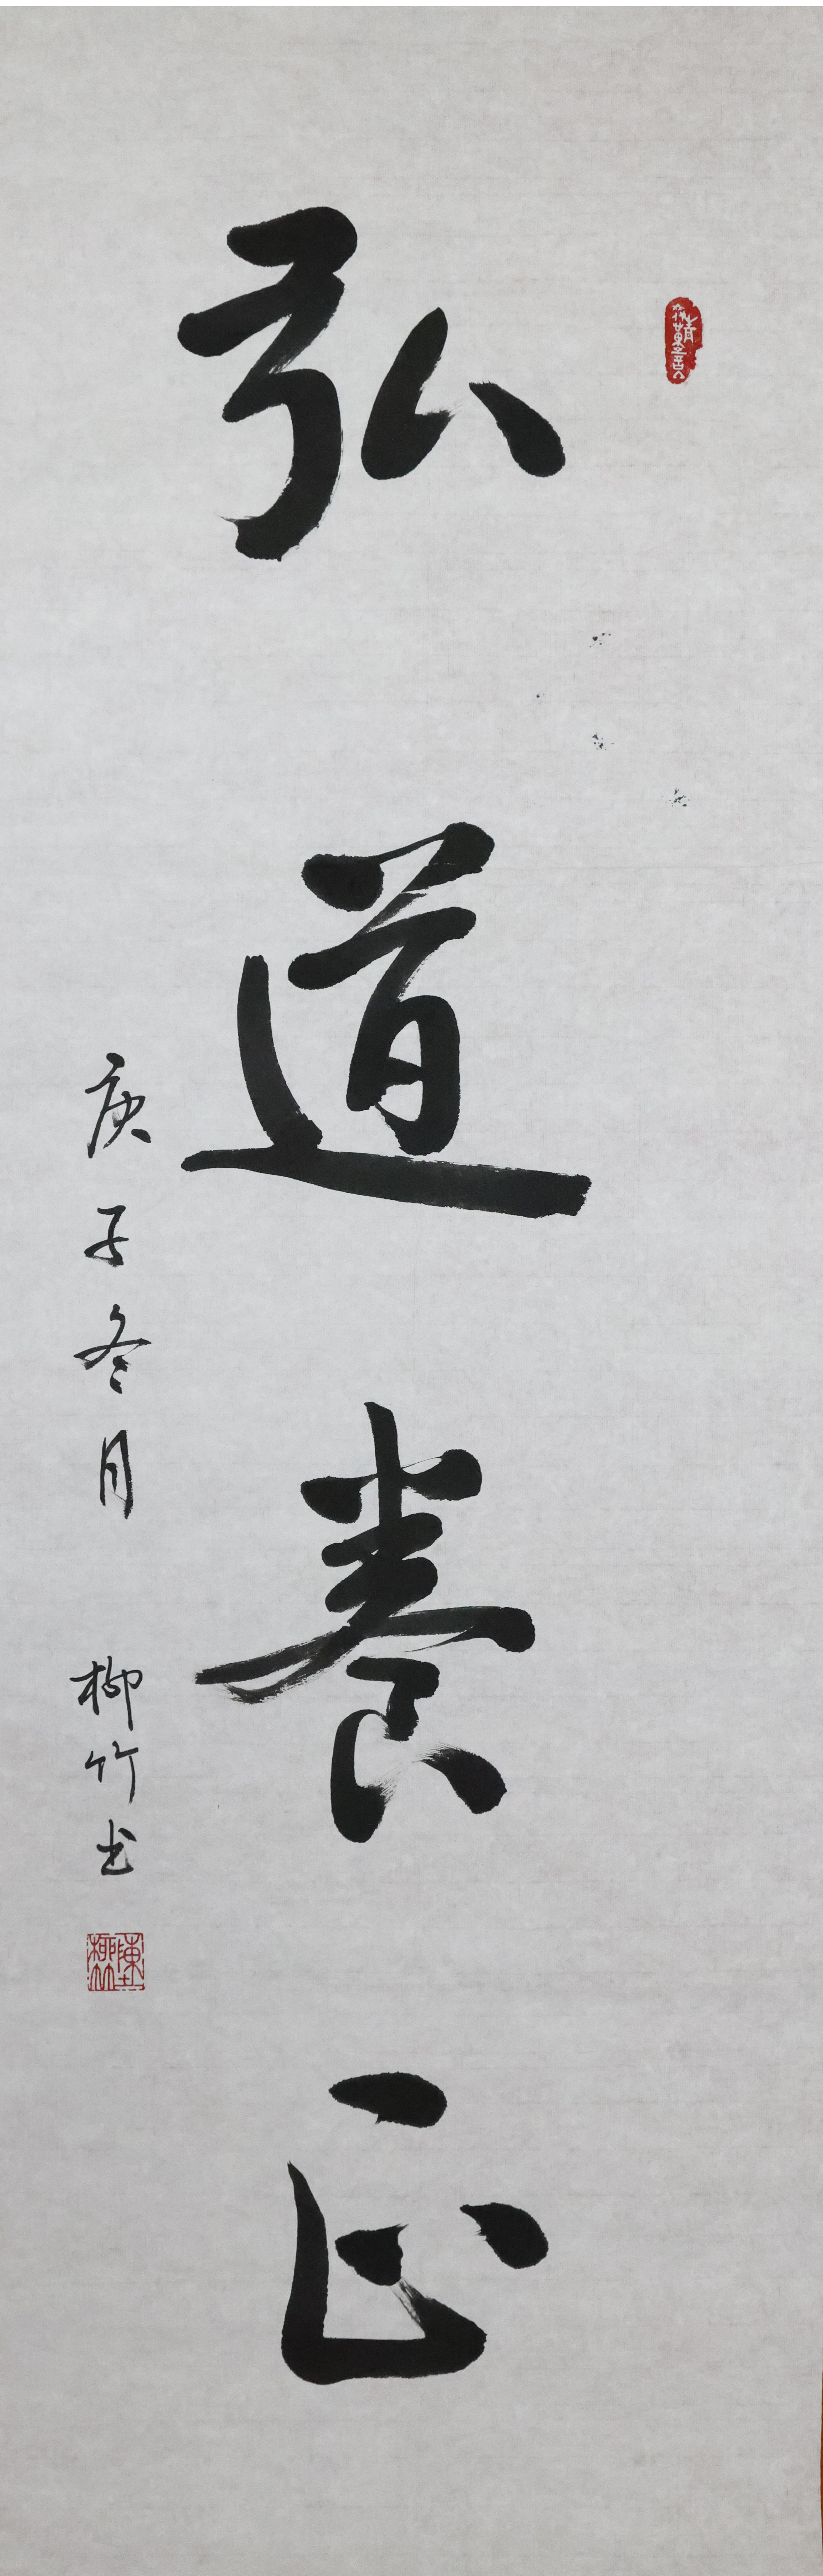 弘道養正
庚子冬月 柳竹书